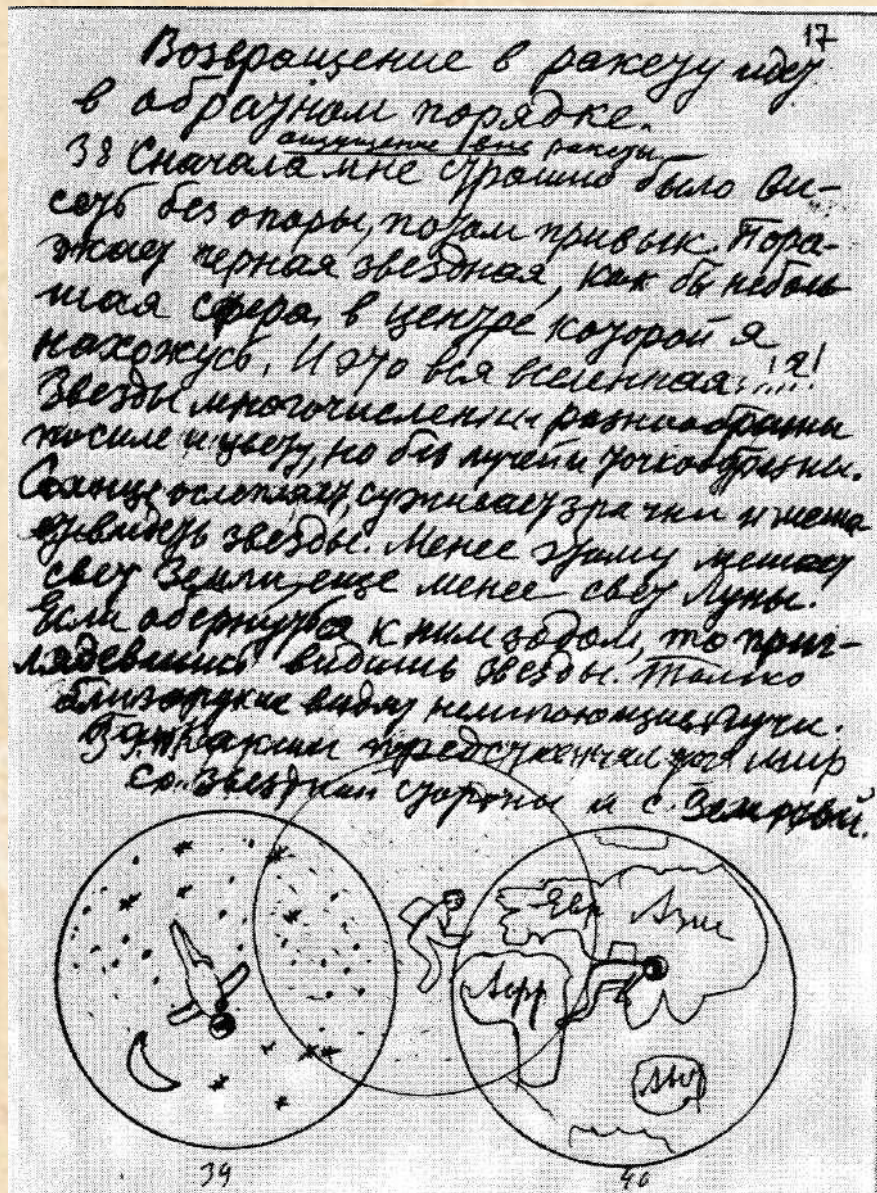 17
Возвращение в ракету идет
в обратном порядке.
ощущение вне ракеты
38 Сначала мне страшно было ви-
сеть без опоры, потом привык. Пора-
жает черная звездная, как бы неболь
шая сфера, в центре которой я
нахожусь. И это вся вселенная!!!
Звезды многочисленны разнообразны
по силе и цвету, но без лучей и точкообразны.
Солнце ослепляет, суживает зрачки и меша
ет видеть звезды. Менее этому мешает
свет Земли, еще менее свет Луны.
Если обернуться к ним задом, то приг-
лядевшись видишь звезды. Только
близорукие видят лучи.
39. Каким мир
со звездной стороны и с Земной.
Евр
Ази
Афр
Авс
39
40